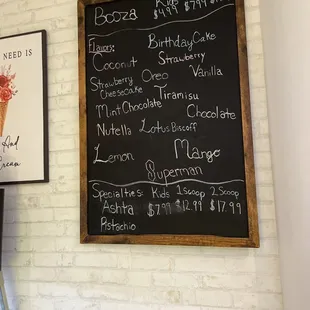 NEED IS
And
Cream
Kids
Booza $4.99 $7.99
Flavors:
Birthday Cake
Coconut Strawberry
Strawberry Oreo Vanilla
Cheesecake Tiramisu
Mint Chocolate Chocolate
Nutella Lotus Biscoff
Lemon Mango
Superman
Specialties: Kids 1 Scoop 2 Scoop
Ashta $7.99 $12.99 $17.99
Pistachio